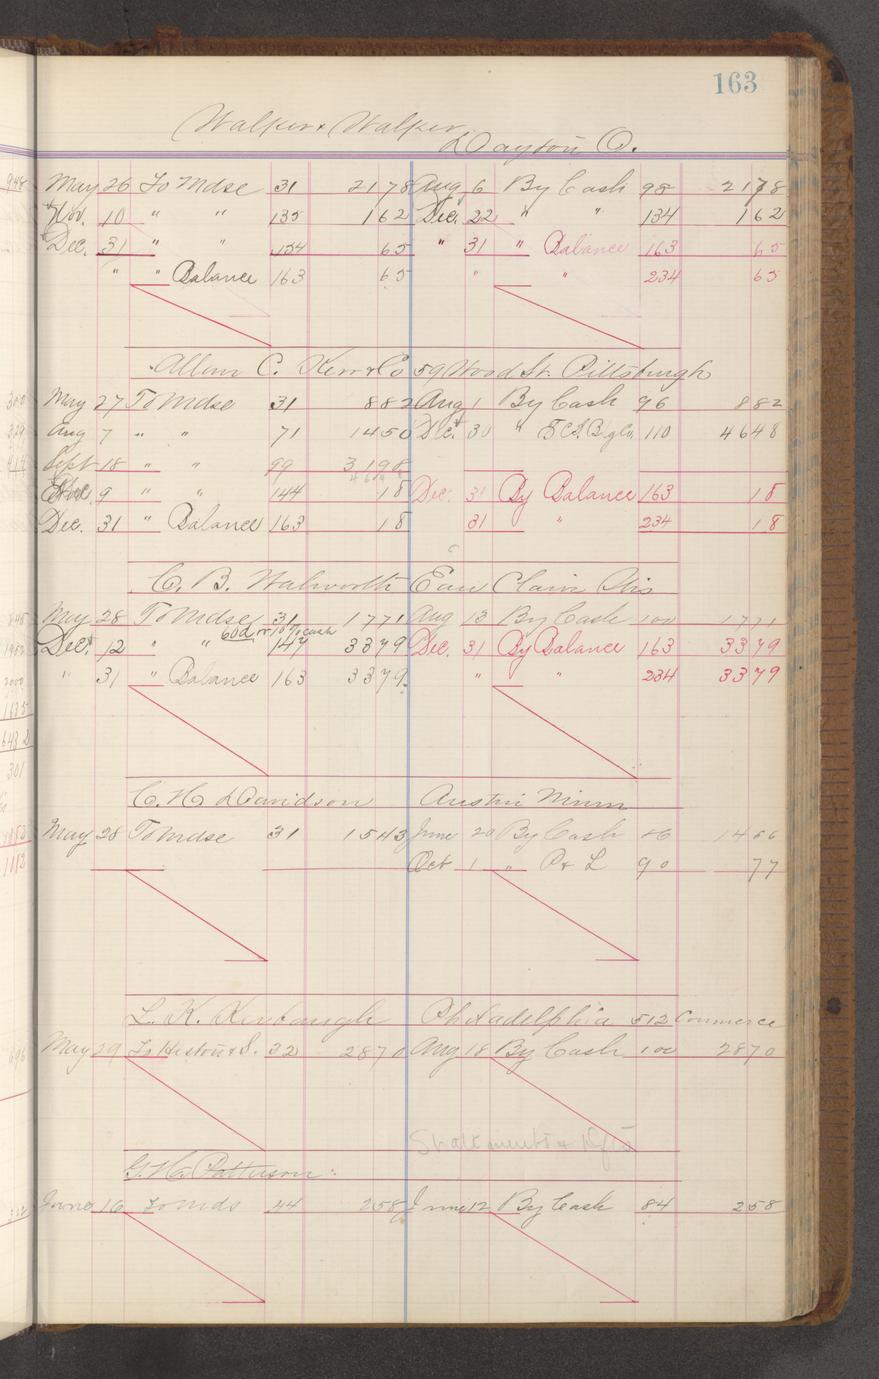 163
Walker & Walker, Dayton O.
948 May 26 To Mdse 31 2178 Aug 6 By Cash 98 2178
Nov. 10 " " 135 162 Dec. 22 " " 134 162
Dec. 31 " " 154 65 " 31 " Balance 163 65
" " Balance 163 65 " " 234 65
Allen C. Kerr & Co 59 Wood St. Pittsburgh
May 27 To Mdse 31 882 Aug 1 By Cash 96 882
Aug 7 " " 71 1450 Dec. 30 " 110 4648
Sept 18 " " 99 3198
9 " " 144 18 Dec. 31 By Balance 163 18
Dec. 31 " Balance 163 18 31 " 234 18
C. B. Walworth Eau Claire Wis
May 28 To Mdse 31 1771 Aug 13 By Cash 100 1771
60d. or 10% cash
Dec. 12 " " 147 3379 Dec. 31 By Balance 163 3379
" 31 " Balance 163 3379 " " 234 3379
1635
6432
301
C. H. Davidson Austin Minn
May 28 To Mdse 31 1543 June 20 By Cash 86 1466
1182 Oct 1 " P & L 90 77
L. K. Philadelphia 512 Commerce
May 29 To 32 2870 Aug 18 By Cash 100 2870
Statements & Dfts
G. H. Patterson
June 16 To Mds 44 258 June 12 By Cash 84 258